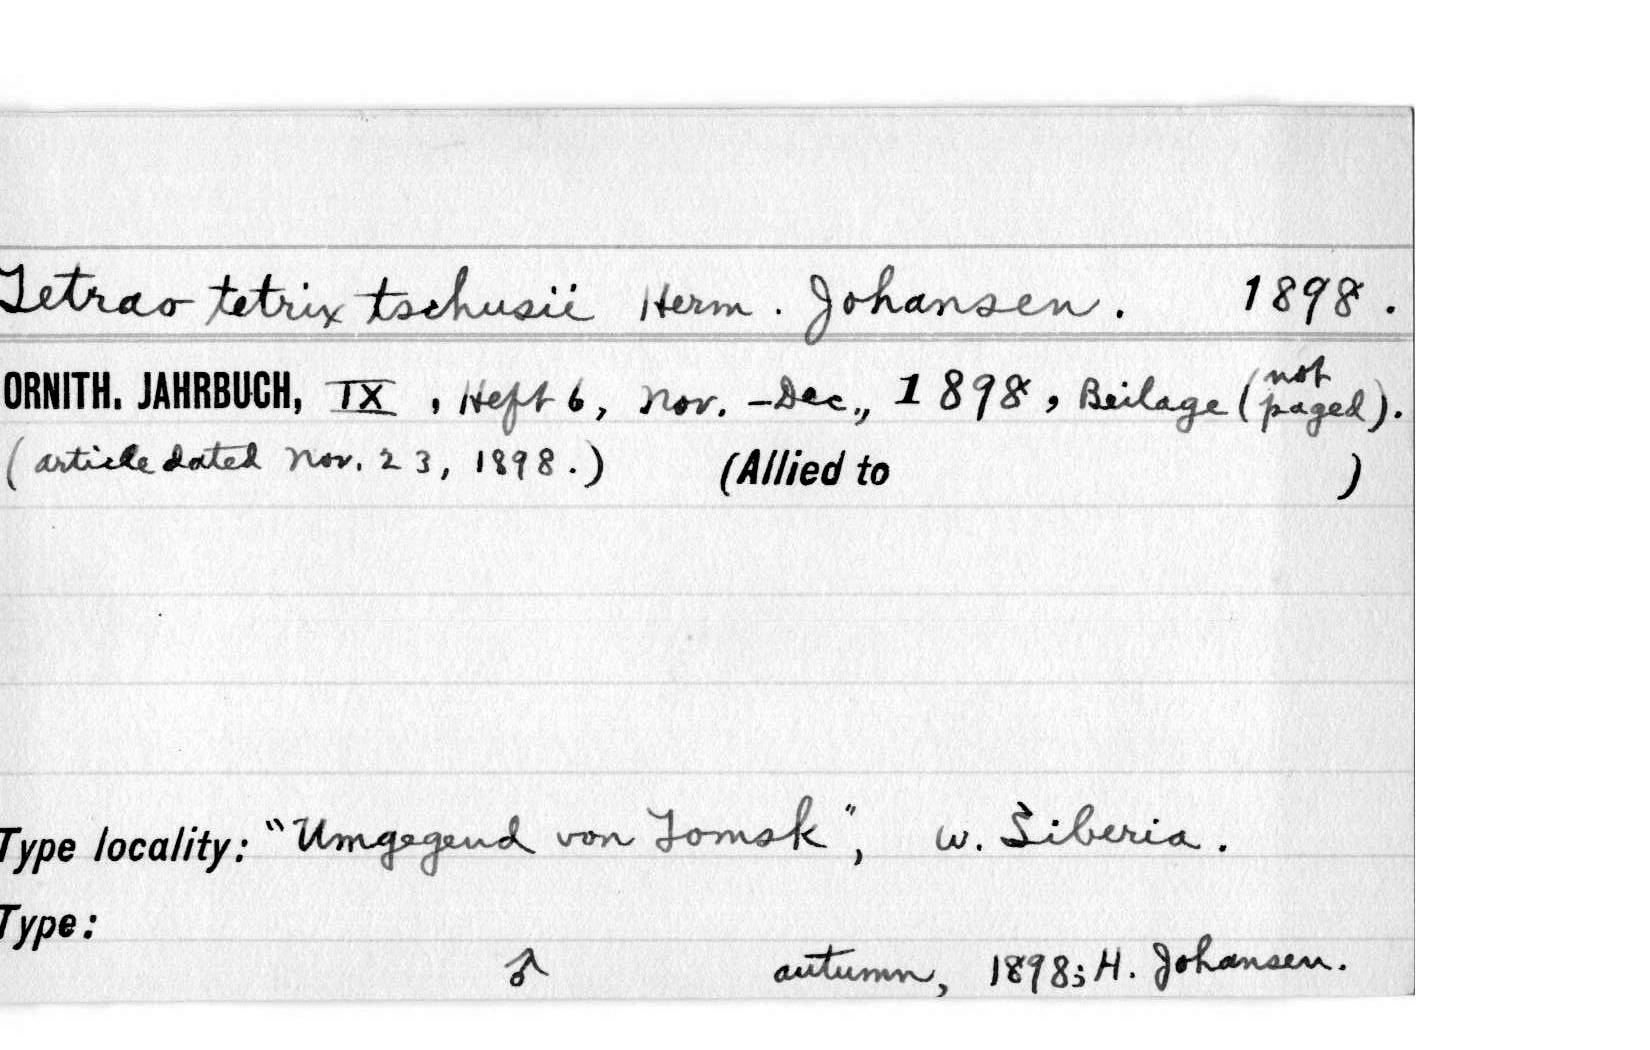 Tetrao tetrix tschusii Herm. Johansen. 1898.
ORNITH. JAHRBUCH, IX, Heft 6, Nov.-Dec., 1898, Beilage (not paged).
(article dated Nov. 23, 1898.) (Allied to )
Type locality: "Umgegend von Tomsk", w. Siberia.
Type:
♂ autumn, 1898; H. Johansen.